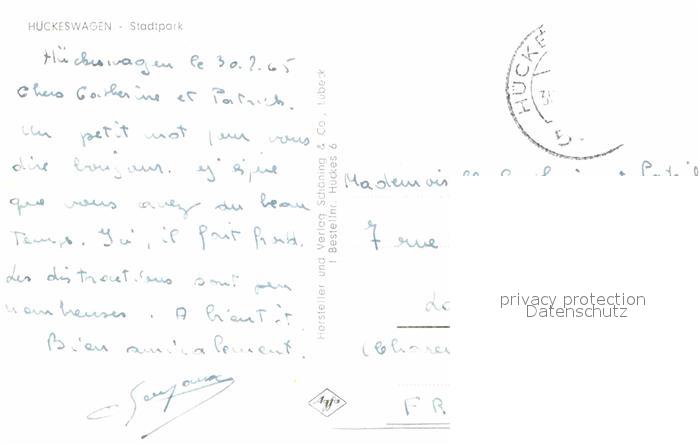 HÜCKESWAGEN - Stadtpark
Hückeswagen le 30.7.65
Chers Catherine et Patrick.
Un petit mot pour vous
dire bonjour. J'espère
que vous avez du beau
temps. Ici, il fait froid.
Les distractions sont peu
nombreuses. A bientôt.
Bien amicalement.
Hersteller und Verlag Schöning & Co., Lübeck
Bestellnr. Hückes 6
HÜCKE
Mademois
7 rue
FR
privacy protection
Datenschutz
Agfa